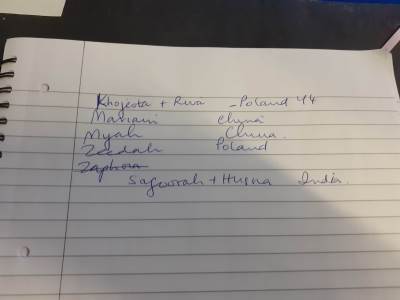 Khojesta + Riva - Poland 44
Mariam China
Myah China.
Zeedah Poland
Zaphora
Safoorah + Husna India.